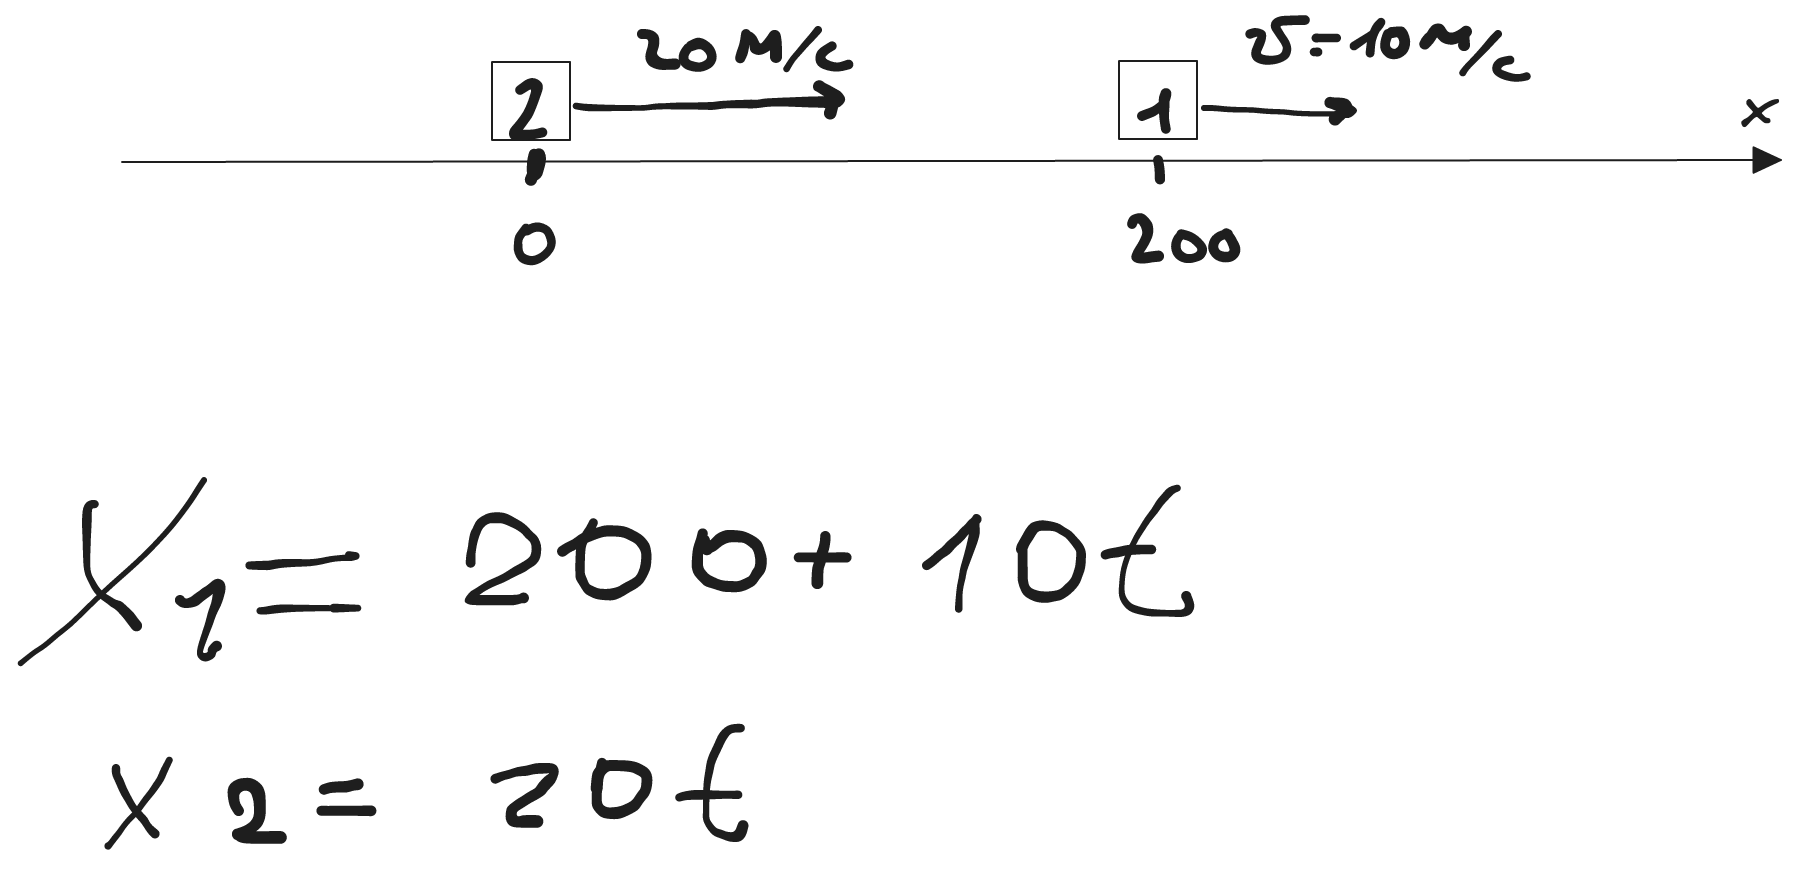 20 м/с
υ=10 м/с
2
1
x
0
200
x₁ = 200 + 10t
x₂ = 20t